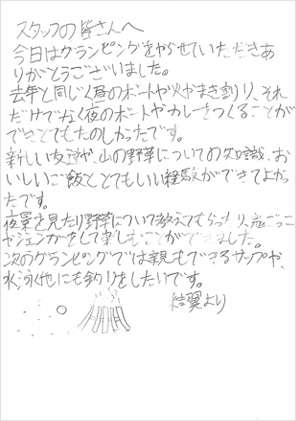 スタッフの皆さんへ
今日はグランピングをやらせていただきあ
りがとうございました。
去年と同じく昼のボートや火やまき割り、それ
だけでなく夜のボートやカレーをつくることが
できとてもたのしかったです。
新しい友達や、山の野草についての知識、お
いしいご飯ととてもいい経験ができてよかっ
たです。
夜景を見たり野草について教えてもらったり、鬼ごっこ
やジェンガーをして楽しむことができました。
次のグランピングでは親もできるサップや、
水泳他にも釣りをしたいです。
結翼より